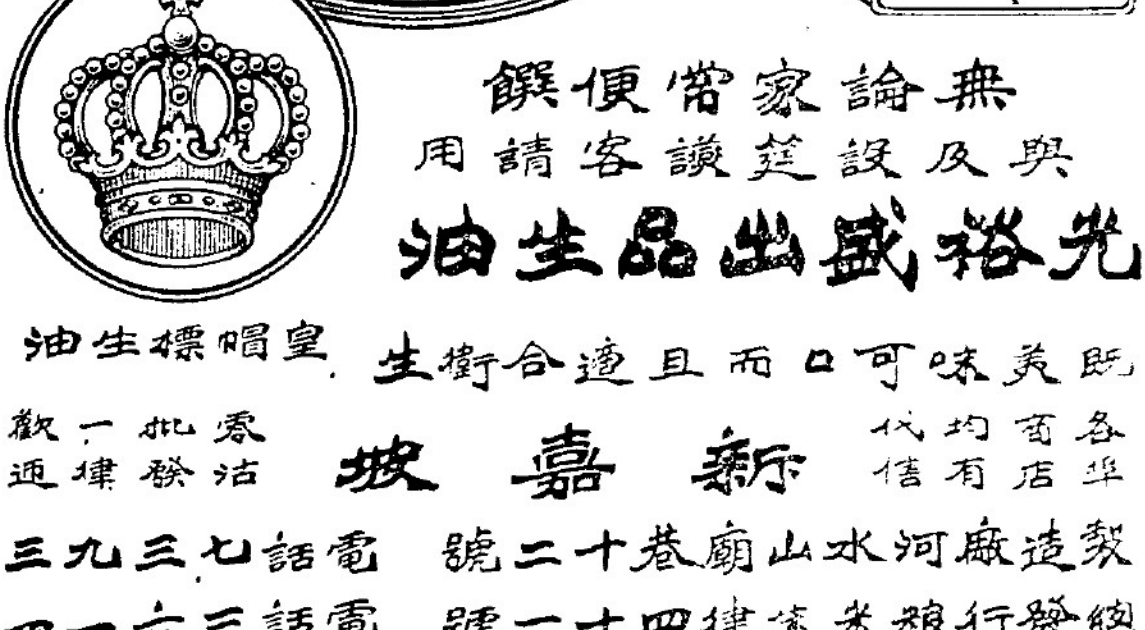 無論家常便饌
與及設筵讌客請用
光裕盛出品生油
既美味可口而且適合衛生
皇帽標生油
各埠商店均有代售
新嘉坡
零沽批發一律歡迎
製造廠河水山廟巷十二號 電話七三九三
總發行 律四十一號 電話三六一四